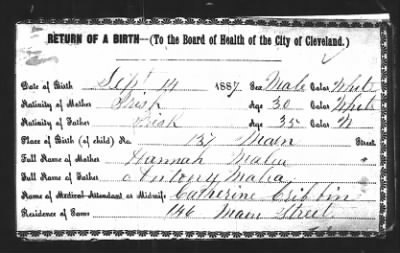 RETURN OF A BIRTH—(To the Board of Health of the City of Cleveland.)
Date of Birth Sept 14 1887 Sex Male Color White
Nativity of Mother Irish Age 30 Color White
Nativity of Father Irish Age 35 Color W
Place of Birth (of child) No. 137 Main Street
Full Name of Mother Hannah Malia "
Full Name of Father Antony Malia
Name of Medical Attendant or Midwife Catherine Gribbin
Residence of Same 146 Main Street